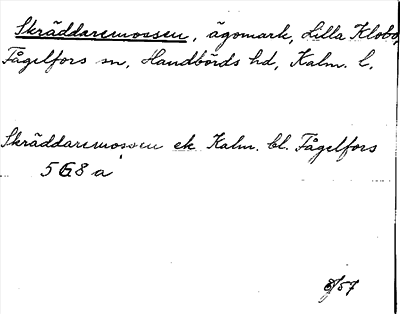 Skräddaremossen, ägomark, Lilla Klobo,
Fågelfors sn, Handbörds hd, Kalm. l.
Skräddaremossen ek Kalm. bl. Fågelfors
568 a